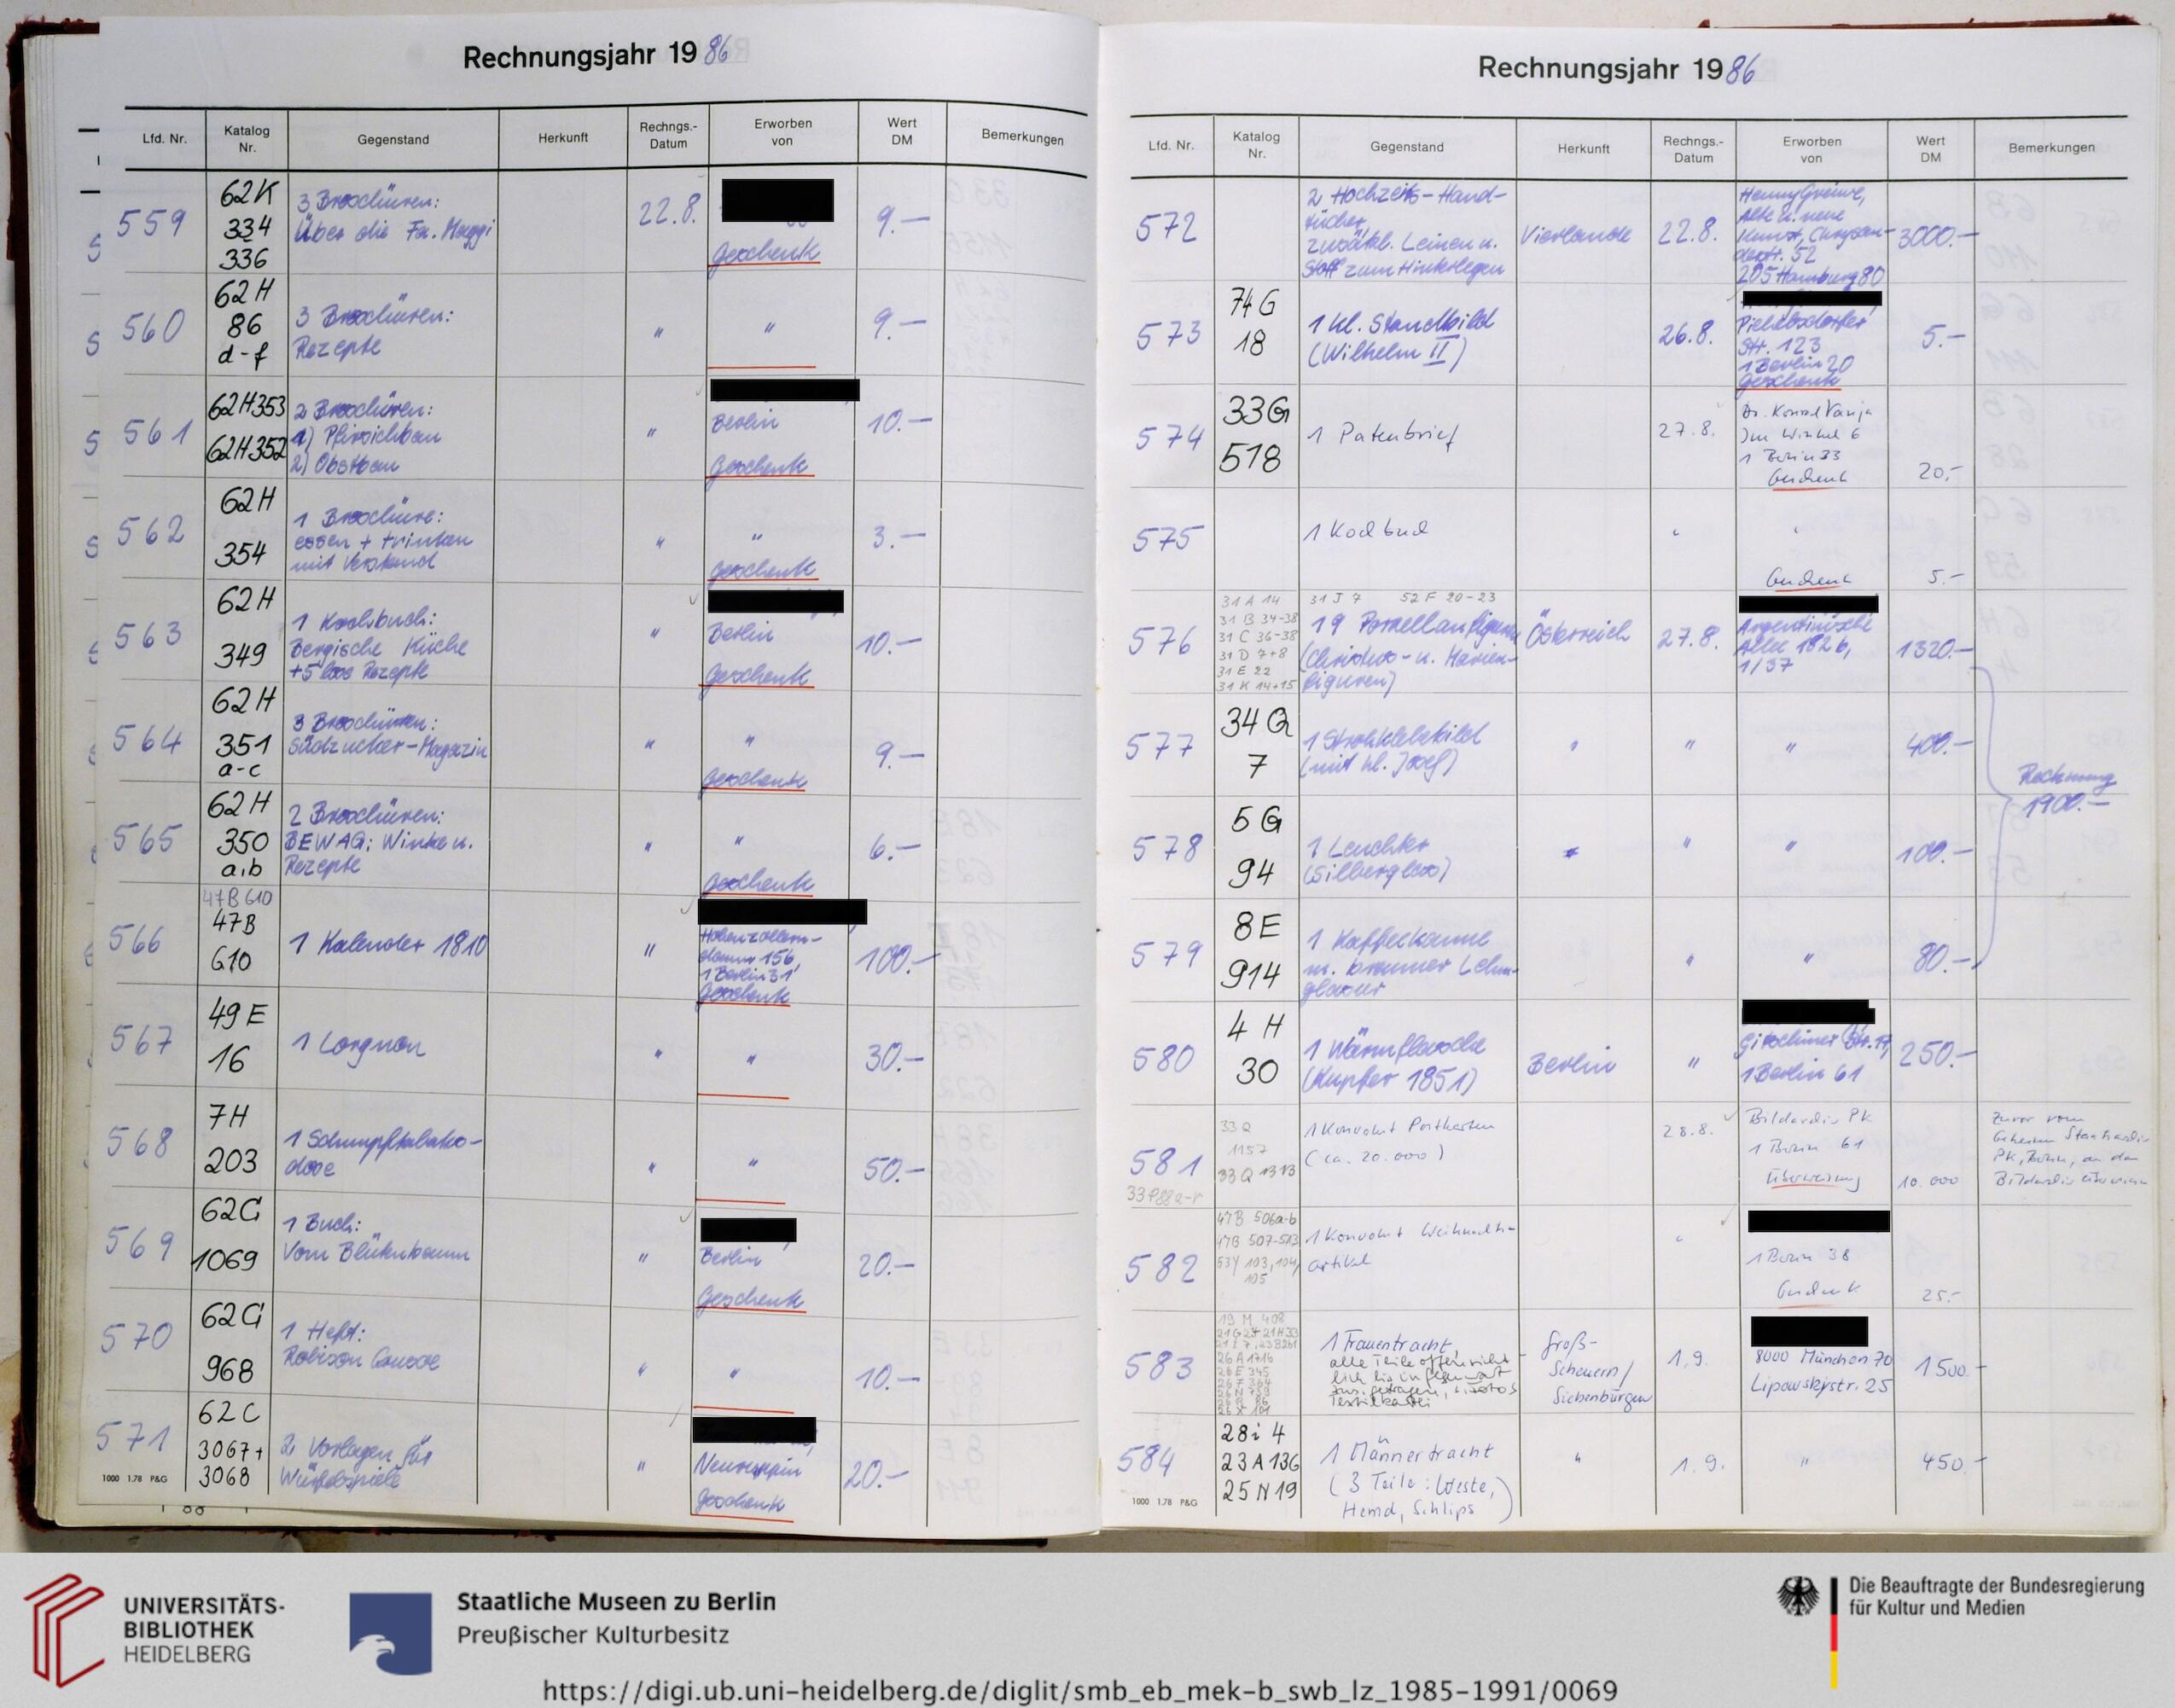 Rechnungsjahr 1986
Lfd. Nr.
Katalog
Nr.
Gegenstand
Herkunft
Rechngs.-
Datum
Erworben
von
Wert
DM
Bemerkungen
559
62K
334
336
3 Broschüren:
Über die Fa. Maggi
22.8.
Geschenk
9.—
560
62H
86
d-f
3 Broschüren:
Rezepte
"
"
9.—
561
62H353
62H352
2 Broschüren:
1) Pfirsichbau
2) Obstbau
"
Berlin
Geschenk
10.—
562
62H
354
1 Broschüre:
essen + trinken
mit Verstand
"
"
Geschenk
3.—
563
62H
349
1 Kochbuch:
Bergische Küche
+5 lose Rezepte
"
Berlin
Geschenk
10.—
564
62H
351
a-c
3 Broschüren:
Südzucker-Magazin
"
"
Geschenk
9.—
565
62H
350
a,b
2 Broschüren:
BEWAG: Winke u.
Rezepte
"
"
Geschenk
6.—
566
47B 610
47B
610
1 Kalender 1810
"
Hohenzollern-
damm 156,
1 Berlin 31
Geschenk
100.—
567
49E
16
1 Lorgnon
"
"
30.—
568
7H
203
1 Schnupftabaks-
dose
"
"
50.—
569
62G
1069
1 Buch:
Vom Blütenbaum
"
Berlin
Geschenk
20.—
570
62G
968
1 Heft:
Robison Crusoe
"
"
10.—
571
62C
3067+
3068
2 Vorlagen für
Würfelspiele
"
Neuruppin
Geschenk
20.—
1000 1.78 P&G
Rechnungsjahr 1986
Lfd. Nr.
Katalog
Nr.
Gegenstand
Herkunft
Rechngs.-
Datum
Erworben
von
Wert
DM
Bemerkungen
572
2 Hochzeits-Hand-
tücher,
zusätzl. Leinen u.
Stoff zum Hinterlegen
Vierlande
22.8.
Henny Greiwe,
Alte u. neue
Kunst, Chrysan-
derstr. 52
205 Hamburg 80
3000.—
573
74G
18
1 kl. Standbild
(Wilhelm II)
26.8.
Pichelsdorfer
Str. 123
1 Berlin 20
Geschenk
5.—
574
33G
518
1 Patenbrief
27.8.
Dr. Konrad Vanja
Im Winkel 6
1 Berlin 33
Geschenk
20,-
575
1 Kochbuch
"
"
Geschenk
5.-
576
31 A 14
31 B 34-38
31 C 36-38
31 D 7+8
31 E 22
31 K 14+15
31 J 7 52 F 20-23
19 Porzellanfiguren
(Christus- u. Marien-
figuren)
Österreich
27.8.
Argentinische
Allee 182 b,
1/37
1320.—
577
34G
7
1 Strohklebebild
(mit hl. Josef)
"
"
"
400.—
Rechnung
1900.—
578
5G
94
1 Leuchter
(Silberglas)
"
"
"
100.—
579
8E
914
1 Kaffeekanne
m. brauner Lehm-
glasur
"
"
"
80.—
580
4 H
30
1 Wärmflasche
(Kupfer 1851)
Berlin
"
Gitschiner Str. 17,
1 Berlin 61
250.—
581
33 Q
1157
33 Q 1313
1 Konvolut Postkarten
(ca. 20.000)
28.8.
Bildarchiv PK
1 Berlin 61
Überweisung
10.000
Zuvor vom
Geheimen Staatsarchiv
PK, Berlin, an das
Bildarchiv überwiesen
582
47B 506a-b
47B 507-513
53Y 103, 104,
105
1 Konvolut Weihnachts-
artikel
"
1 Berlin 38
Geschenk
25.-
583
19 M 408
26 A 1716
26 E 345
1 Frauentracht,
alle Teile offensicht-
lich bis in Gegenwart
zus. getragen, s. Fotos
Textilkartei
Groß-
Scheuern/
Siebenbürgen
1.9.
8000 München 70
Lipowskystr. 25
1500.-
584
28i 4
23A136
25N19
1 Männertracht
(3 Teile: Weste,
Hemd, Schlips)
"
1.9.
"
450.-
1000 1.78 P&G
UNIVERSITÄTS-
BIBLIOTHEK
HEIDELBERG
Staatliche Museen zu Berlin
Preußischer Kulturbesitz
Die Beauftragte der Bundesregierung
für Kultur und Medien
https://digi.ub.uni-heidelberg.de/diglit/smb_eb_mek-b_swb_lz_1985-1991/0069